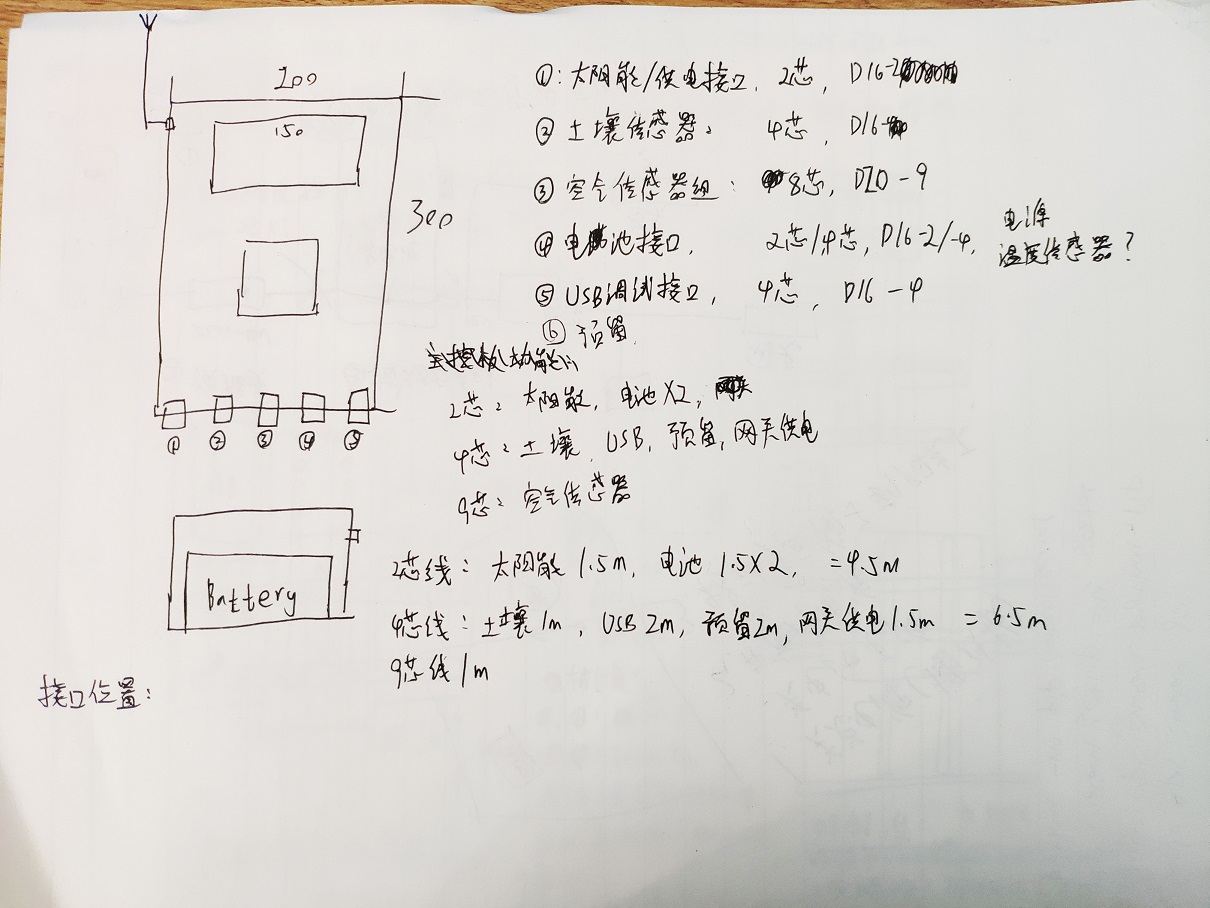 200
150
300
① ② ③ ④ ⑤
Battery
接口位置:
①: 太阳能/供电接口, 2芯, D16-2
② 土壤传感器: 4芯, D16-
③ 空气传感器组: 8芯, D20-9
④ 电池接口, 2芯/4芯, D16-2/-4, 电源
温度传感器?
⑤ USB调试接口, 4芯, D16-4
⑥ 预留.
主控板
2芯: 太阳能, 电池X2,
4芯: 土壤, USB, 预留, 网关供电
9芯: 空气传感器
2芯线: 太阳能 1.5m, 电池 1.5X2, =4.5m
4芯线: 土壤1m, USB 2m, 预留2m, 网关供电1.5m = 6.5m
9芯线 1m